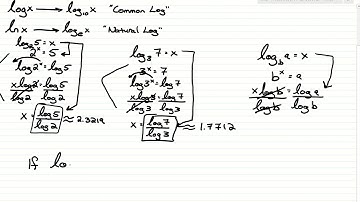 log x → log₁₀ x "Common Log"
ln x → logₑ x "Natural Log"
log₂ 5 = x
2ˣ = 5
log 2ˣ = log 5
x log 2 / log 2 = log 5 / log 2
x = log 5 / log 2 ≈ 2.3219
log₃ 7 = x
3ˣ = 7
log 3ˣ = log 7
x log 3 / log 3 = log 7 / log 3
x = log 7 / log 3 ≈ 1.7712
log_b a = x
bˣ = a
x log b / log b = log a / log b
If lo